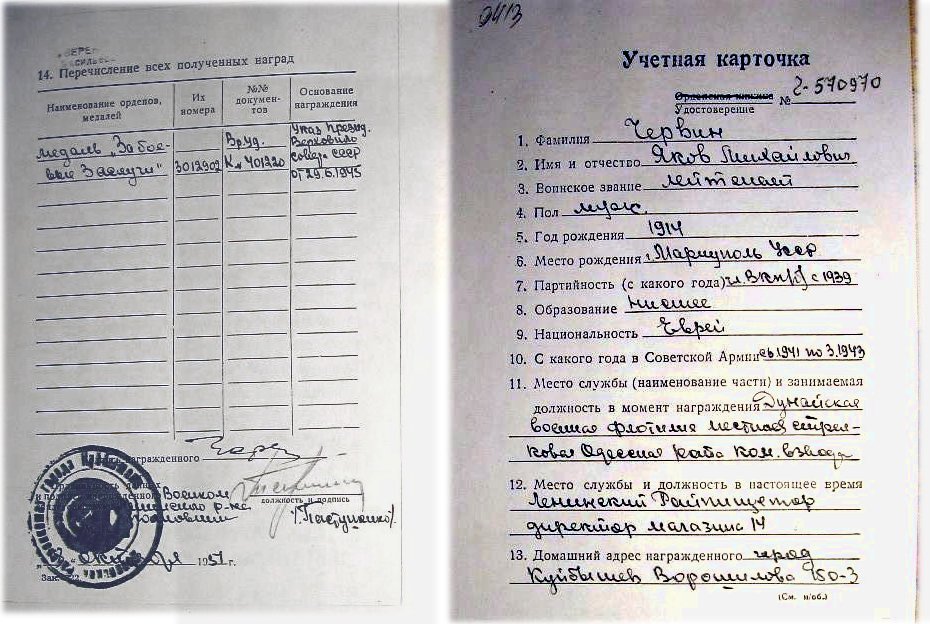 14. Перечисление всех полученных наград
Наименование орденов, медалей
Их номера
№№ документов
Основание награждения
медаль „За бое-
вые Заслуги"
3012902
Вр. Уд.
К № 401220
Указ През.
Верховного
Совета СССР
от 29.6.1945
награжденного
Военком
должность и подпись
/Пастушенко/
1951 г.
Зак.
9413
Учетная карточка
Орденская книжка № Г-570970
Удостоверение
1. Фамилия Червин
2. Имя и отчество Яков Михайлович
3. Воинское звание лейтенант
4. Пол муж.
5. Год рождения 1914
6. Место рождения г. Мариуполь Усср
7. Партийность (с какого года) чл. ВКП(б) с 1939
8. Образование низшее
9. Национальность Еврей
10. С какого года в Советской Армии с 6 1941 по 3.1943
11. Место службы (наименование части) и занимаемая
должность в момент награждения Дунайская
военная флотилия местная стрел-
ковая Одесская рота ком. взвода
12. Место службы и должность в настоящее время
Ленинский Райпищеторг
директор магазина 14
13. Домашний адрес награжденного город
Куйбышев Ворошилова 150-3
(См. н/об.)